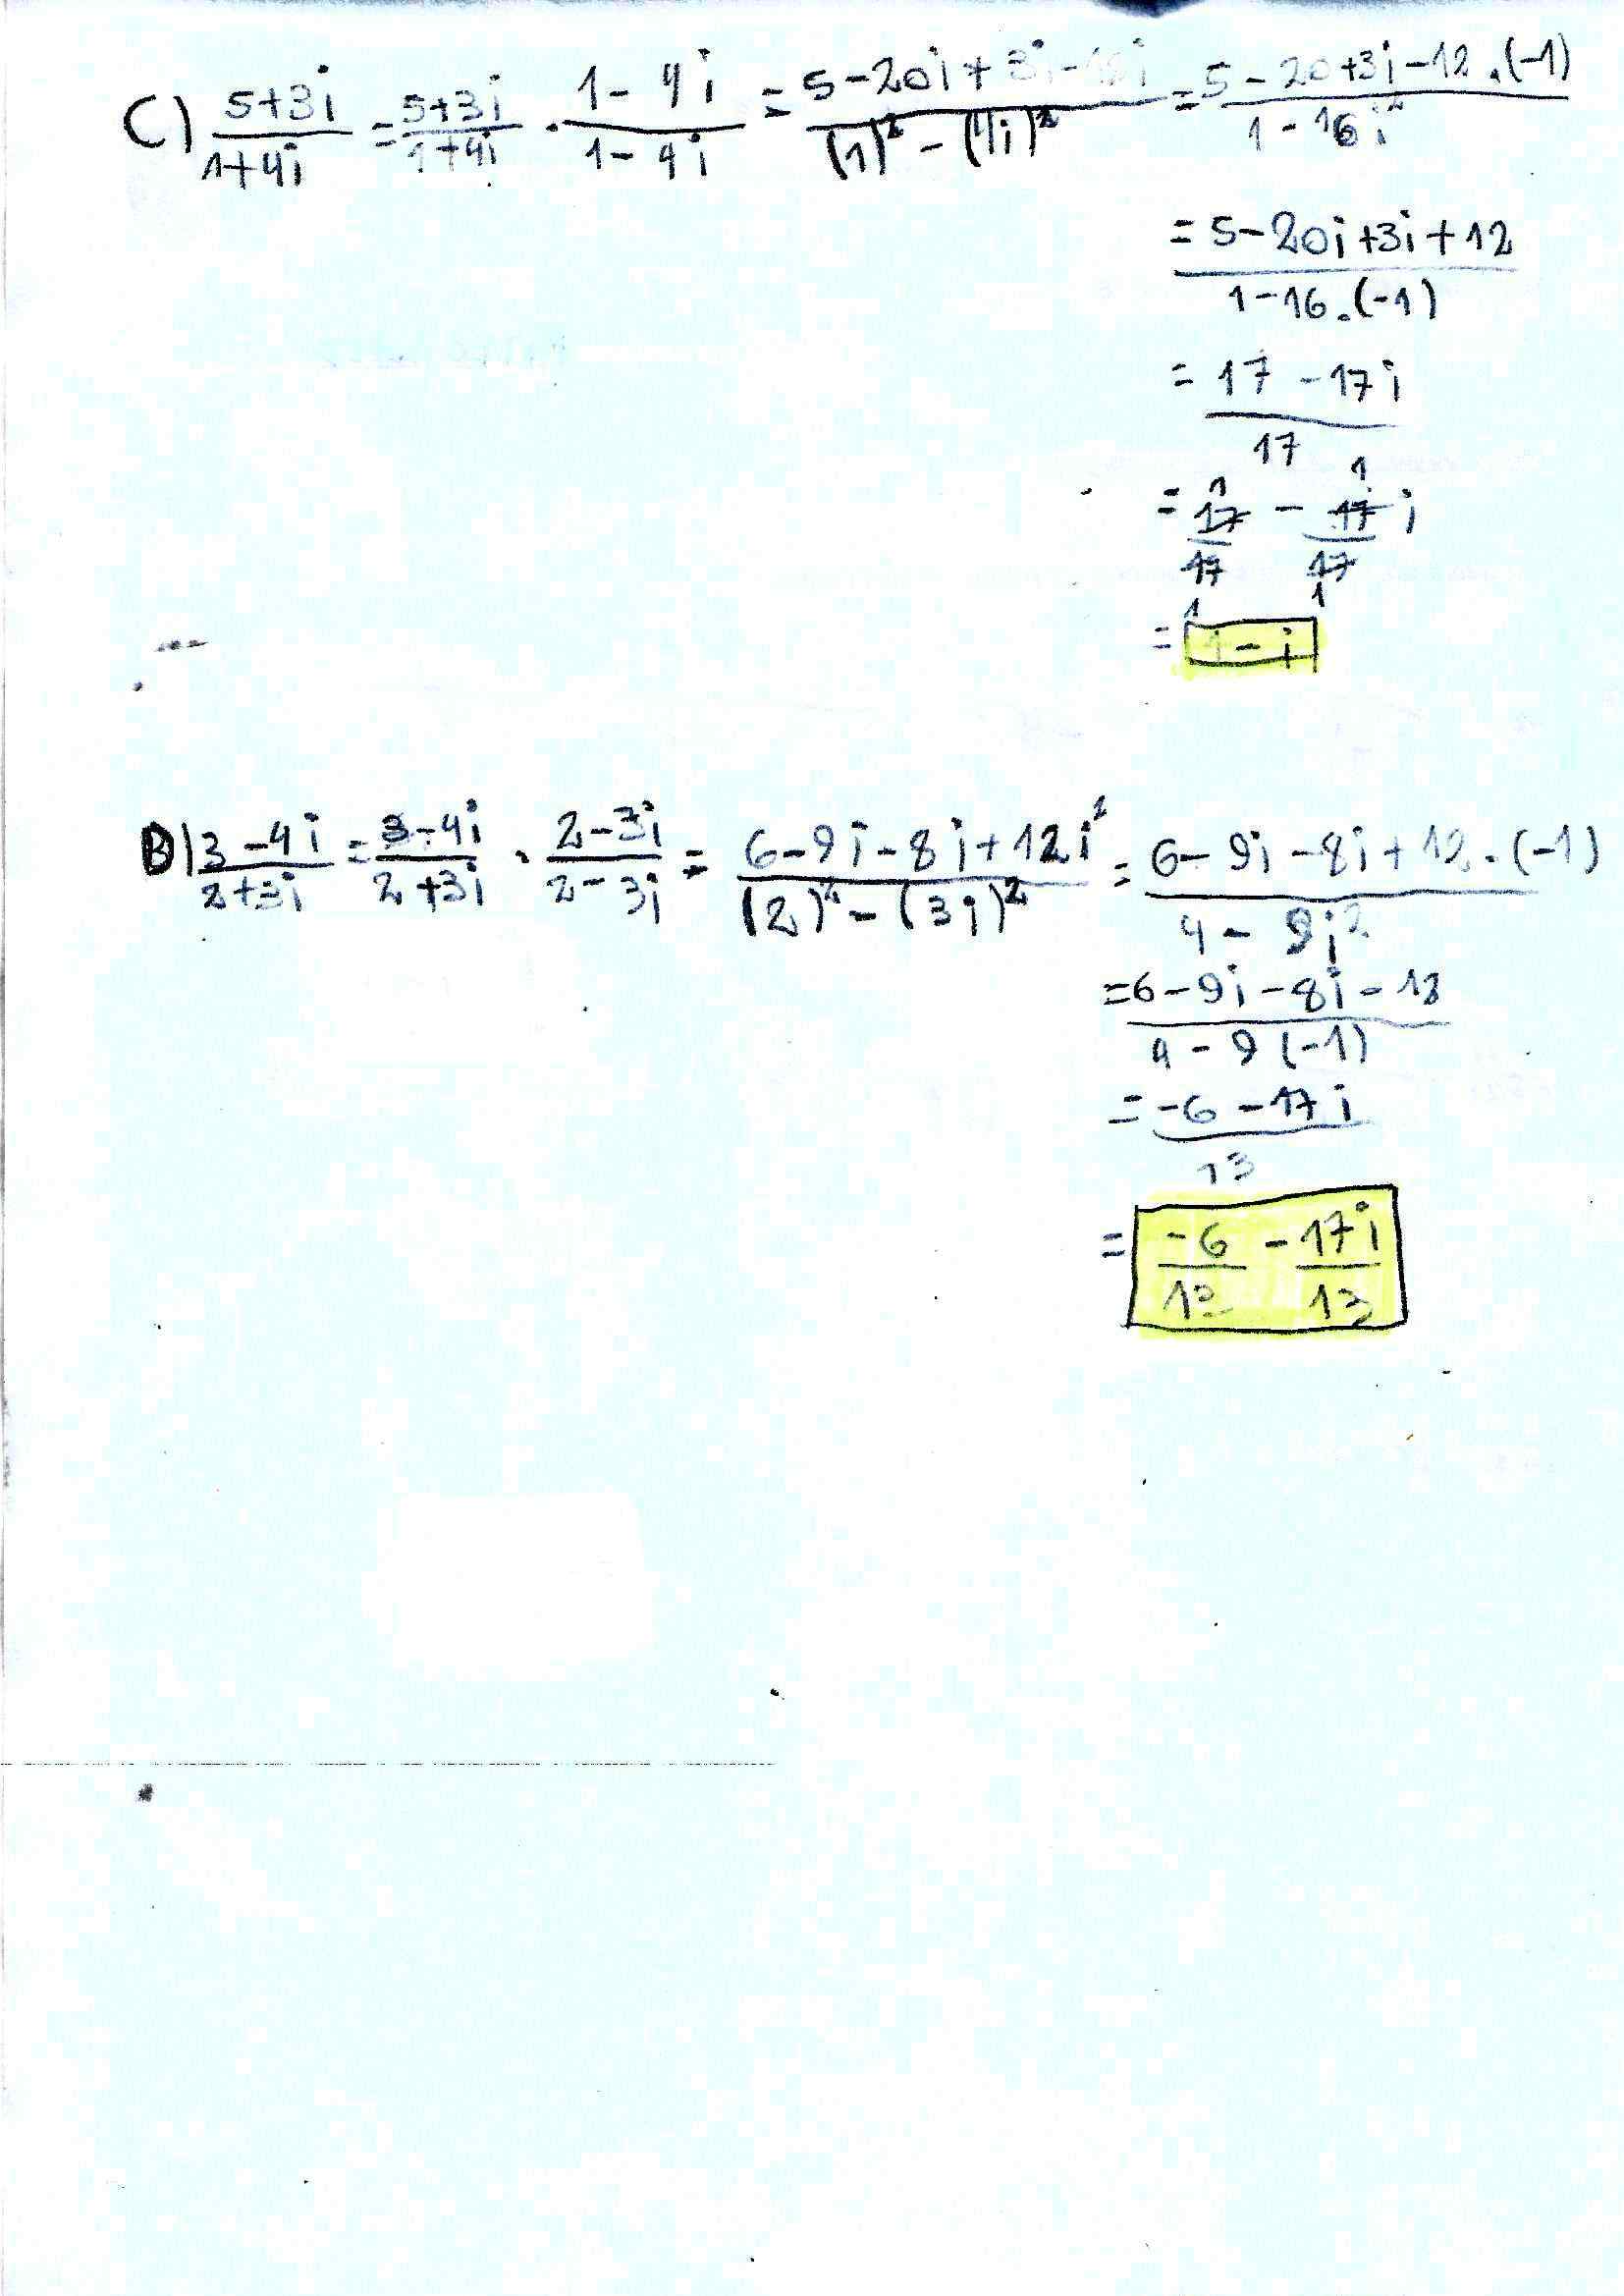 C) (5+3i)/(1+4i) = (5+3i)/(1+4i) · (1-4i)/(1-4i) = (5-20i+3i-12i)/((1)²-(4i)²) = (5-20+3i-12.(-1))/(1-16i²)
= (5-20i+3i+12)/(1-16.(-1))
= (17-17i)/17
= 17/17 - 17/17 i
= 1-i
B) (3-4i)/(2+3i) = (3-4i)/(2+3i) · (2-3i)/(2-3i) = (6-9i-8i+12i²)/((2)²-(3i)²) = (6-9i-8i+12.(-1))/(4-9i²)
= (6-9i-8i-12)/(4-9(-1))
= (-6-17i)/13
= -6/13 - 17i/13